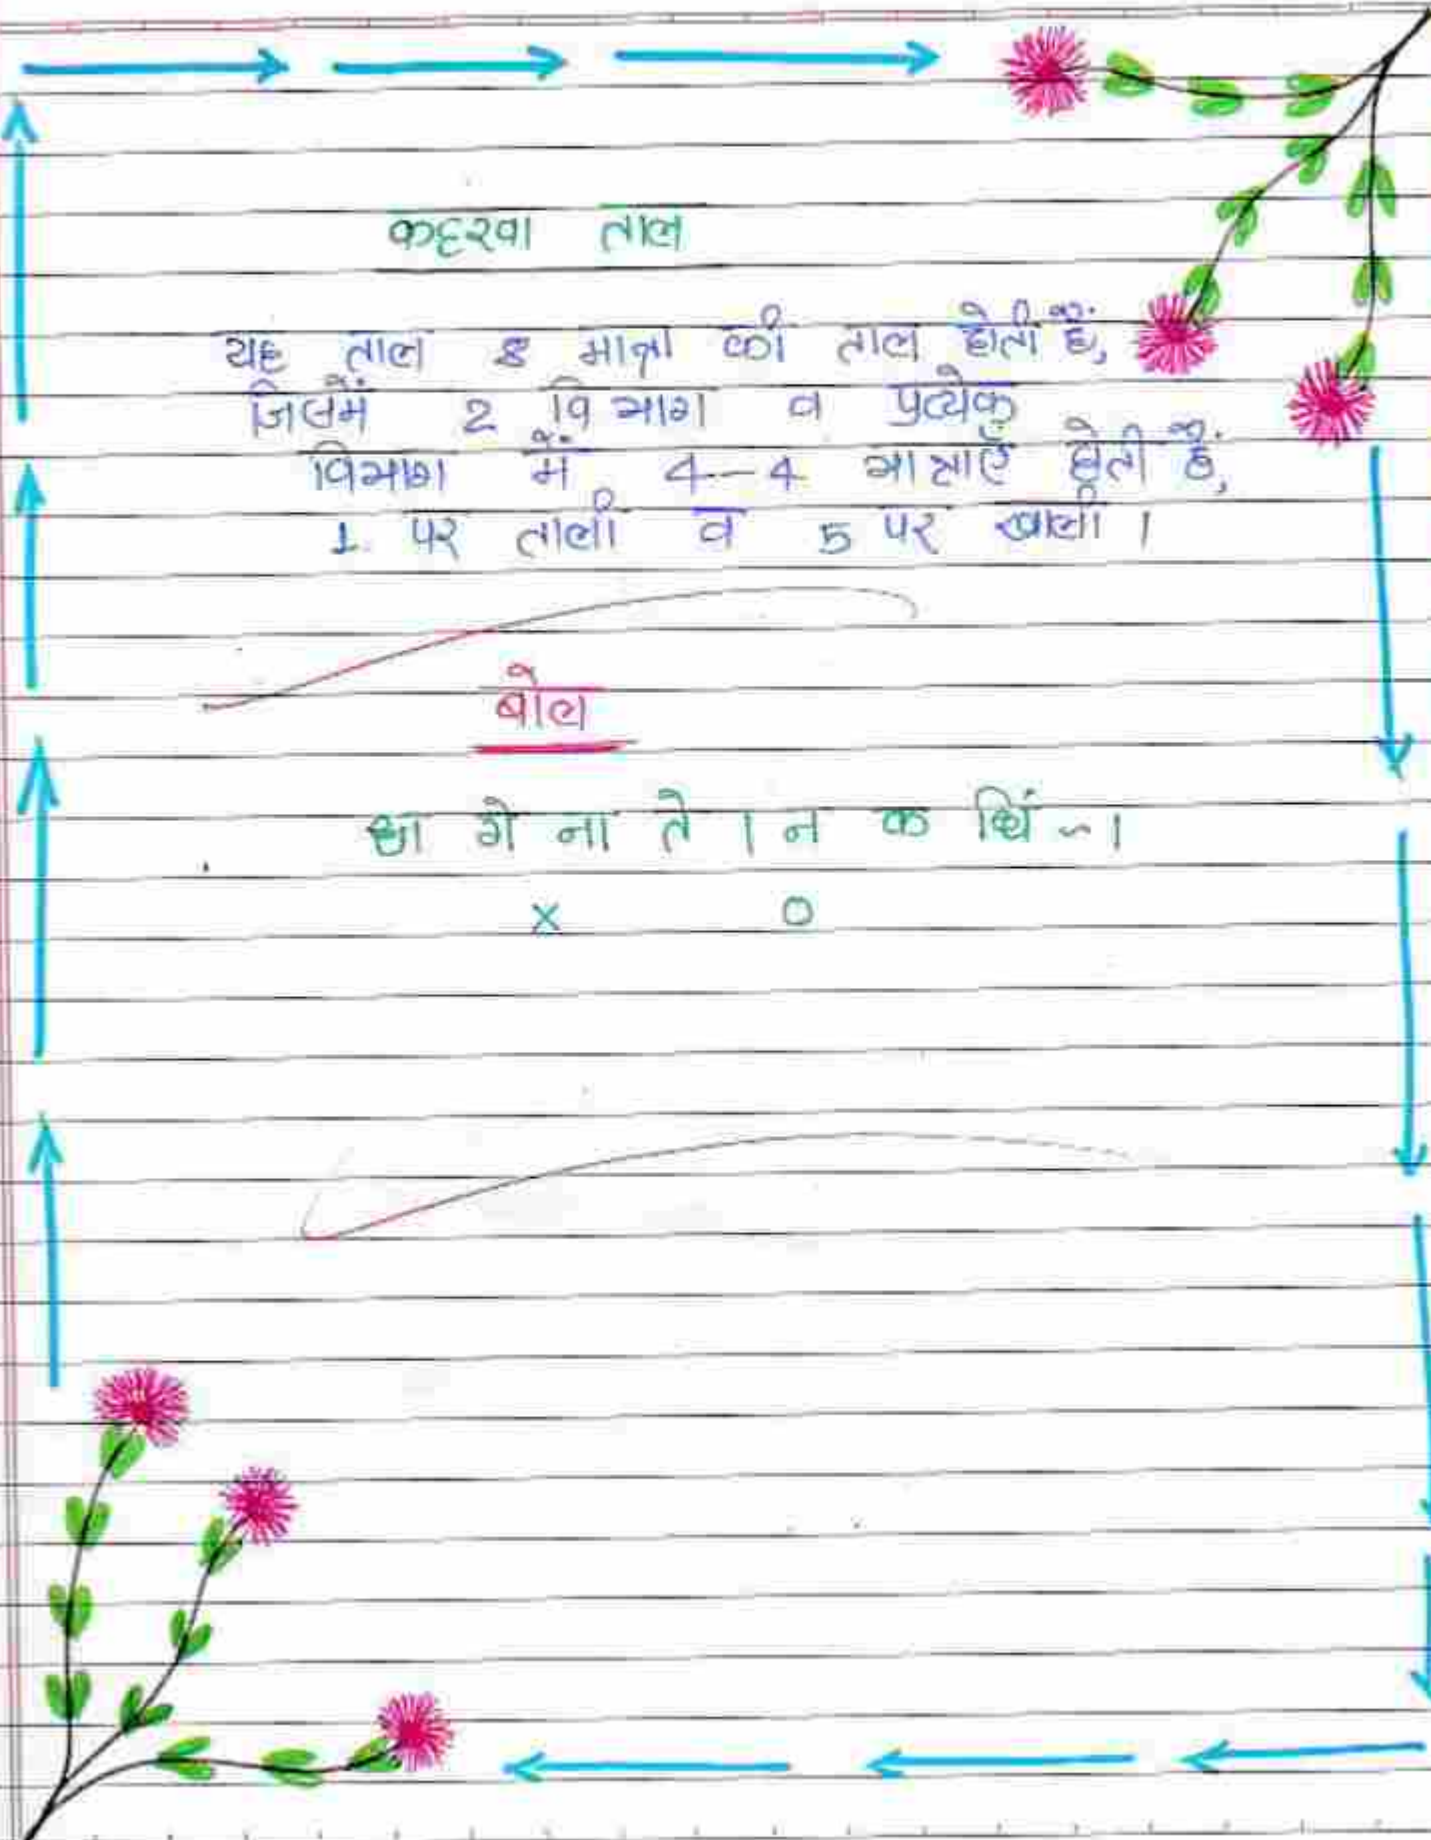 कहरवा ताल
यह ताल 8 मात्रा की ताल होती है,
जिसमें 2 विभाग व प्रत्येक
विभाग में 4-4 मात्राएँ होती हैं,
1 पर ताली व 5 पर खाली ।
बोल
धा गे ना ते । न क धिं - ।
x 0